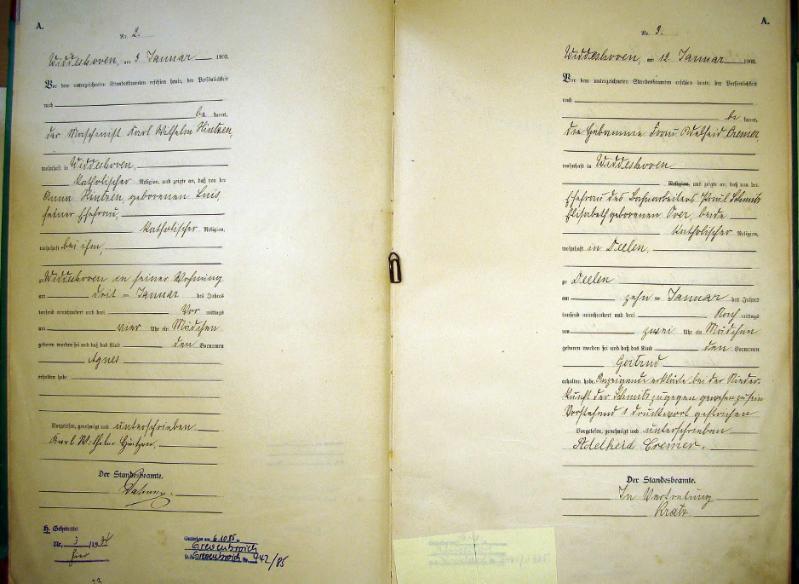 A.
Nr. 2.
Widdeshoven, am 5 Januar 1903.
Vor dem unterzeichneten Standesbeamten erschien heute, der Persönlichkeit
nach
be kannt,
der Maschinist Karl Wilhelm Hintzen,
wohnhaft in Widdeshoven,
katholischer Religion, und zeigte an, daß von der
Anna Hintzen, geborenen
seiner Ehefrau,
katholischer Religion,
wohnhaft bei ihm,
zu Widdeshoven in seiner Wohnung
am drit ten Januar des Jahres
tausend neunhundert und drei Vor mittags
um vier Uhr ein Mädchen
geboren worden sei und daß das Kind den Vornamen
Agnes
erhalten habe.
Vorgelesen, genehmigt und unterschrieben
Karl Wilhelm Hintzen.
Der Standesbeamte.
H. Geheimnis
Nr. 3
hier
6.10.85
Grevenbroich
Grevenbroich Nr. 942/85
A.
Nr. 3.
Widdeshoven, am 12 Januar 1903.
Vor dem unterzeichneten Standesbeamten erschien heute, der Persönlichkeit
nach
be kannt,
die Hebamme Frau Adelheid Cremer,
wohnhaft in Widdeshoven
Religion, und zeigte an, daß von der
Ehefrau des Bahnarbeiters Paul Schmitz
Elisabeth geborenen Over, beide
katholischer Religion,
wohnhaft in Deelen,
zu Deelen
am zehn ten Januar des Jahres
tausend neunhundert und drei Nach mittags
um zwei Uhr ein Mädchen
geboren worden sei und daß das Kind den Vornamen
Gertrud
erhalten habe. Anzeigende erklärte bei der Nieder-
kunft der Schmitz zugegen gewesen zu sein
Vorstehend 1 Druckwort gestrichen
Vorgelesen, genehmigt und unterschrieben
Adelheid Cremer.
Der Standesbeamte.
In Vertretung